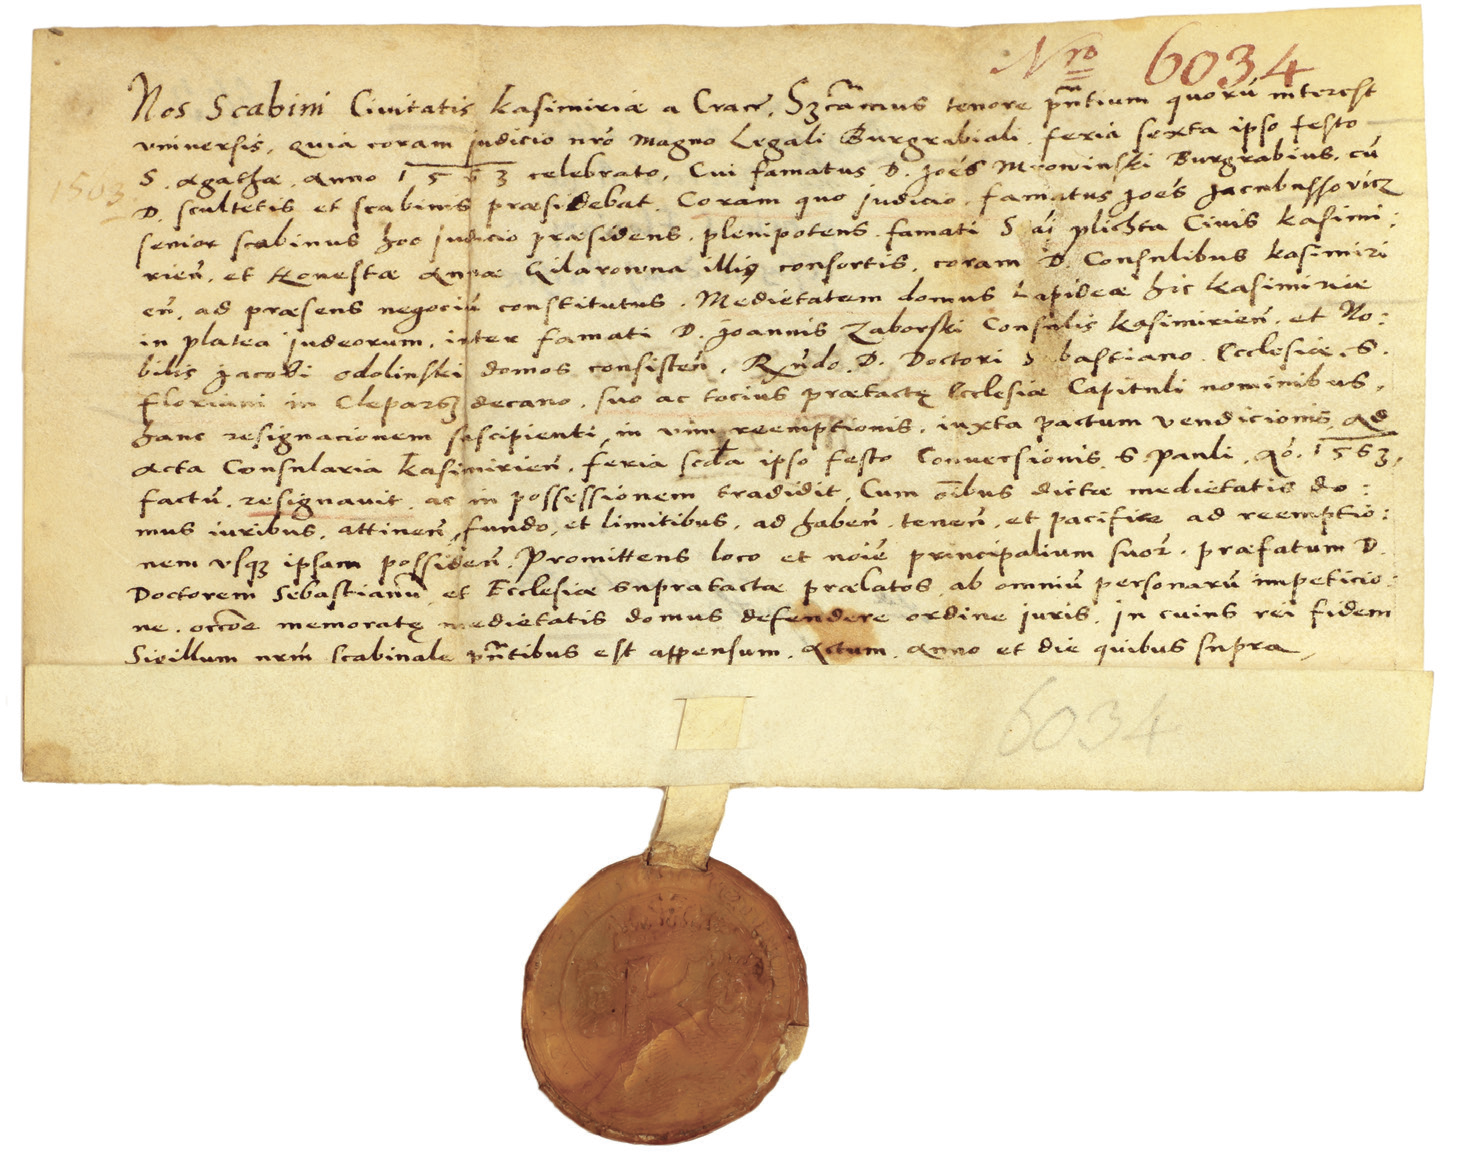 Nro 6034
Nos Scabini Civitatis Kasimiriæ a Cracr. Szcamus tenore pñtium quorũ interest
vniuersis, quia coram judicio nrõ magno Legali Burgrabiali feria sexta ipso festo
1503
S. Agathæ. Anno 1563 celebrato. Cui famatus D. Joẽs Mrowinski Burgrabius. cũ
D. scultetis et scabinis præsidebat. Coram quo judicio famatus Joẽs Jacubussovicz
senior scabinus hoc judicio præsidens. plenipotens famati plichta Civis Kasimi:
rieñ. et Honestæ Annæ Gilarowna illiꝯ consortis. coram D. Consulibus Kasimiri
eñ. ad præsens negociũ constitutus. Medietatem domus Lapideæ hic Kasimiriæ
in platea judeorum. inter famati D. Joannis Zaborski Consulis Kasimirieñ. et No:
bilis Jacobi Odolinski domos consisteñ. Rỹndo. D. Doctori Sebastiano. Ecclesiæ. S.
Floriani in Cleparz decano. suo ac tocius prætactę Ecclesiæ Capituli nominibus.
hanc resignacionem suscipienti, in vim reemptionis. iuxta pactum vendicionis Ad
Acta Consularia Kasimirieñ. feria scda ipso festo Conuersionis S. Pauli. Aõ. 1563.
factũ. resignauit. ac in possessionem tradidit. Cum oĩbus dictæ medietatis do:
mus iuribus. attineñ, fundo, et limitibus. ad habeñ. teneñ. et pacifice ad reemptio:
nem vsqꝫ ipsam possideñ. Promittens loco et noĩe principalium suoꝝ. præfatum D.
Doctorem Sebastianũ et Ecclesiæ supratactæ prælatos ab omniũ personarũ impeticio:
ne. occõe memoratę medietatis domus defendere ordine iuris. In cuius rei fidem
Sigillum nrm̃ scabinale pñtibus est appensum. Actum. Anno et die quibus supra
6034